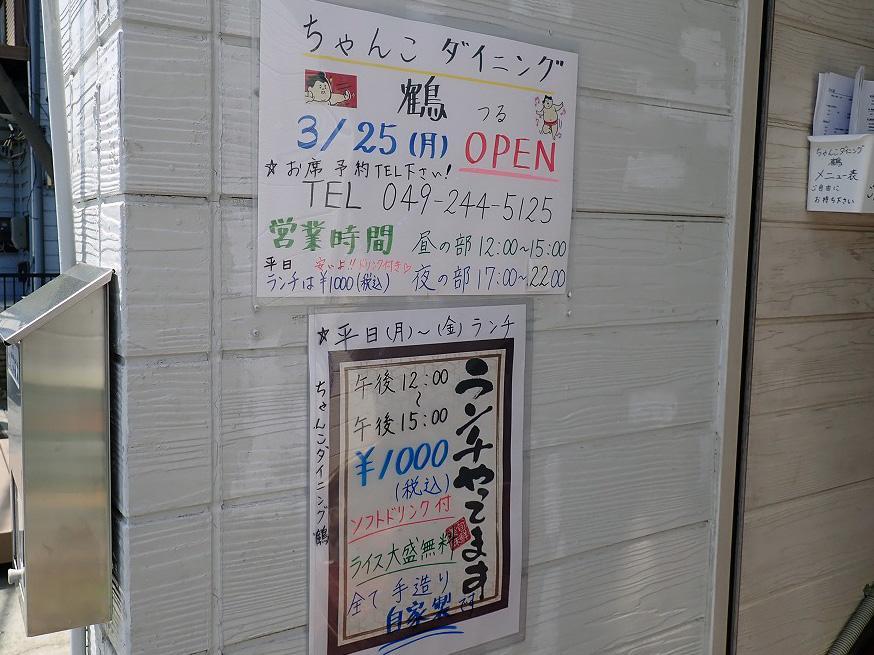 ちゃんこ ダイニング
鶴 つる
3/25(月) OPEN
☆お席 予約TEL下さい!
TEL 049-244-5125
営業時間 昼の部12:00~15:00
平日 安いよ!!ドリンク付き♡
ランチは¥1000(税込) 夜の部17:00~22:00
☆平日(月)~(金)ランチ
ちゃんこダイニング鶴
ランチやってます
午後12:00
~
午後15:00
¥1000
(税込)
ソフトドリンク付
ライス大盛無料
全て手造り
自家製です
ちゃんこダイニング
鶴
メニュー表
ご自由に
お持ち下さい